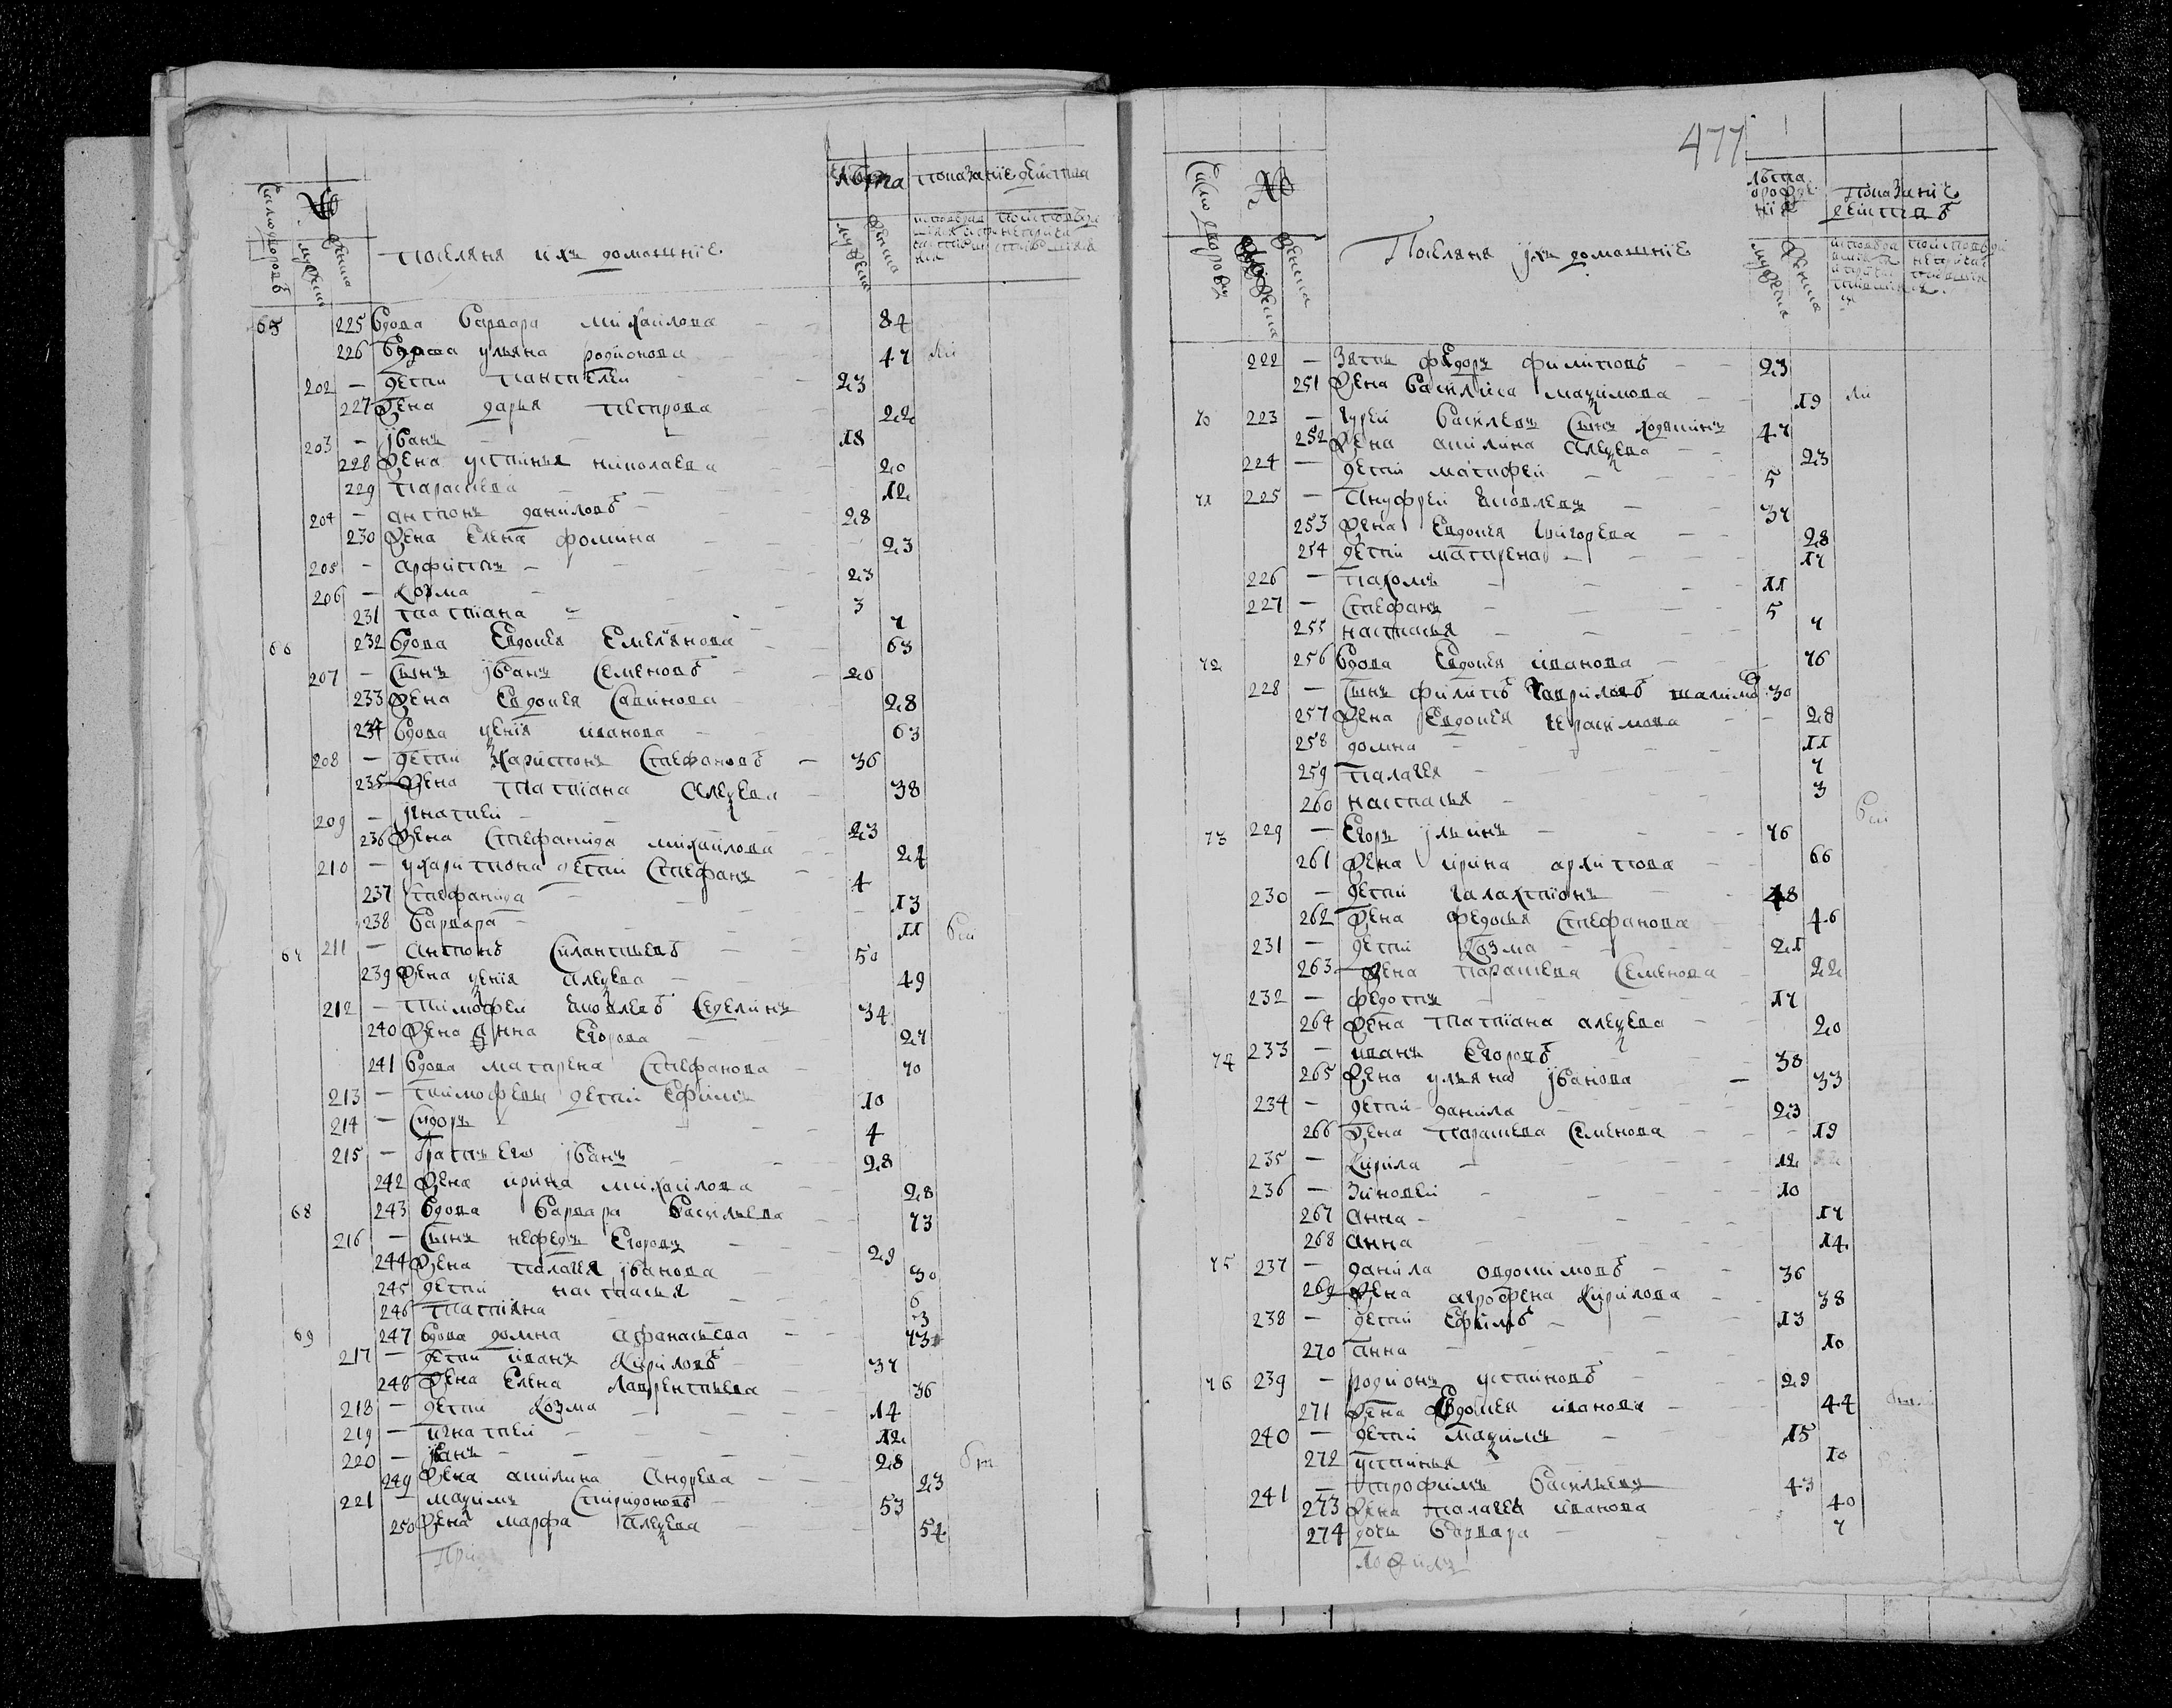 лѣта показание действа
число дворовъ № мужеска женска поселяня ихъ домашние мужеска женска
65 225 вдова варвара михаилова 84
226 вдова ульяна родионова 47
202 — дети пантелей 23
227 жена дарья петрова 22
203 — іванъ 18
228 жена устинья николаева 20
229 парасковья 12
204 — антонъ даниловъ 28
230 жена елена фомина 23
205 — архипъ 23
206 — козма 3
231 татиана 7
66 232 вдова евдокея емельянова 63
207 — сынъ іванъ семеновъ 20
233 жена евдокея савинова 28
234 вдова ѯения иванова 63
208 — дети харитонъ стефановъ 36
235 жена татиана алеѯева 38
209 — игнатей 23
236 жена стефанида михайлова 24
210 — у харитона дети стефанъ 4
237 стефанида 13
238 варвара 11
67 211 — антонъ силантьевъ 50
239 жена ѯения алеѯева 49
212 — тимофей яковлевъ 34
240 жена анна егорова 27
241 вдова матрена стефанова 70
213 — тимофевы дети ефимъ 10
214 — сидоръ 4
215 — братъ ево іванъ 28
242 жена ирина михайлова 28
68 243 вдова варвара васильева 73
216 — сынъ нефедъ егоровъ 29
244 жена палагея іванова 30
245 дети настасья 6
246 татияна 3
69 247 вдова домна афанасьева 73
217 — дети иванъ кириловъ 37
248 жена елена лаврентьева 36
218 — дети козма 14
219 — игнатей 12
220 — іванъ 28
249 жена акилина андреева 23
221 — маѯимъ спиридоновъ 53
250 жена марфа алеѯева 54
477
число дворовъ № мужеска женска Поселяня ихъ домашние лѣта о рождении мужеска женска показание действъ
222 — зять федоръ филиповъ 23
251 жена василиса маѯимова 19
70 223 — гурей василевъ сынъ 47
252 жена акилина алеѯева 23
224 — дети матфей 5
71 225 — ануфрей яковлевъ 37
253 жена евдокея григорева 28
254 дети матрена 17
226 — пахомъ 11
227 — стефанъ 5
255 настасья 7
72 256 вдова евдокея иванова 76
228 — сынъ филипъ гавриловъ 30
257 жена евдокея герасимова 28
258 домна 11
259 палагея 7
260 настасья 3
73 229 — егоръ ильинъ 76
261 жена ирина архипова 66
230 — дети галактионъ 48
262 жена федосья стефанова 46
231 — дети козма 21
263 жена парасковья семенова 22
232 — федотъ 17
264 жена татиана алеѯева 20
74 233 — иванъ егоровъ 38
265 жена ульяна іванова 33
234 — дети данила 23
266 жена парасковья семенова 19
235 — кирила 12
236 — зиновей 10
267 анна 17
268 анна 14
75 237 — данила овдокимовъ 36
269 жена агрофена кирилова 38
238 — дети ефимъ 13
270 анна 10
76 239 — родионъ устиновъ 29
271 жена евдокея иванова 44
240 — дети маѯимъ 15
272 устинья 10
241 — трофимъ васильевъ 43
273 жена палагея иванова 40
274 дочь варвара 7